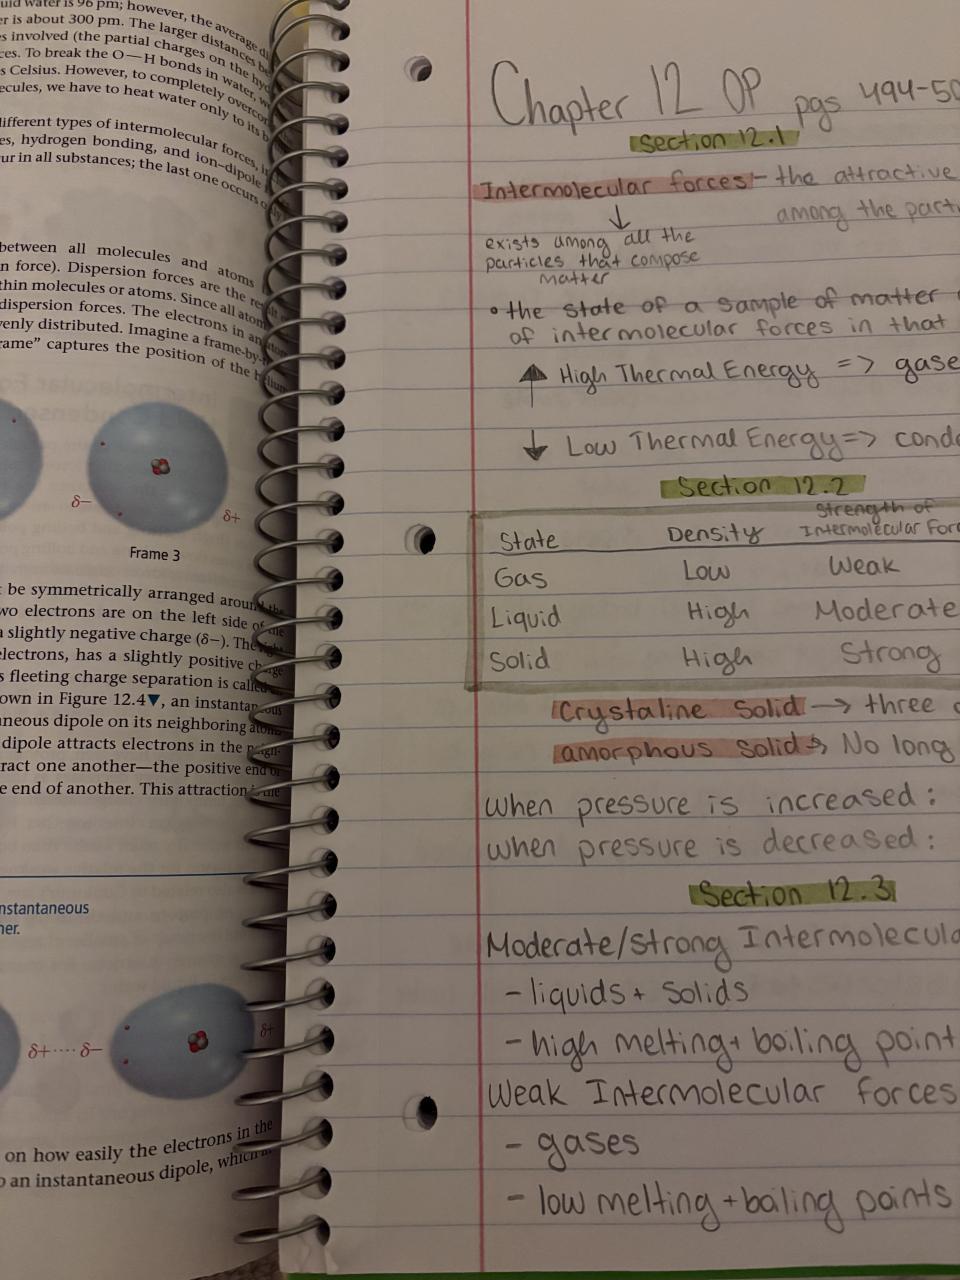 uid water is 96 pm; however, the average
er is about 300 pm. The larger distances
s involved (the partial charges on the
ces. To break the O—H bonds in water,
s Celsius. However, to completely
ecules, we have to heat water only to its
different types of intermolecular forces,
es, hydrogen bonding, and ion–dipole
ur in all substances; the last one occurs
between all molecules and atoms
n force). Dispersion forces are the
thin molecules or atoms. Since all
dispersion forces. The electrons in an
venly distributed. Imagine a frame-by-
rame” captures the position of the
δ−
δ+
Frame 3
be symmetrically arranged around
wo electrons are on the left side of
a slightly negative charge (δ−). The
electrons, has a slightly positive
s fleeting charge separation is called
own in Figure 12.4▼, an
neous dipole on its neighboring
dipole attracts electrons in the
ract one another—the positive end
e end of another. This attraction
nstantaneous
her.
δ+ ···· δ−
δ+
on how easily the electrons in the
o an instantaneous dipole,
Chapter 12 OP pgs 494-50
Section 12.1
Intermolecular forces - the attractive
among the part
↓
exists among all the
particles that compose
matter
• the state of a sample of matter
of intermolecular forces in that
↑ High Thermal Energy => gase
↓ Low Thermal Energy => cond
Section 12.2
State Density Strength of Intermolecular For
Gas Low Weak
Liquid High Moderate
Solid High Strong
Crystaline Solid → three
amorphous Solid → No long
when pressure is increased:
when pressure is decreased:
Section 12.3
Moderate/strong Intermolecula
- liquids + solids
- high melting + boiling point
Weak Intermolecular forces
- gases
- low melting + boiling points